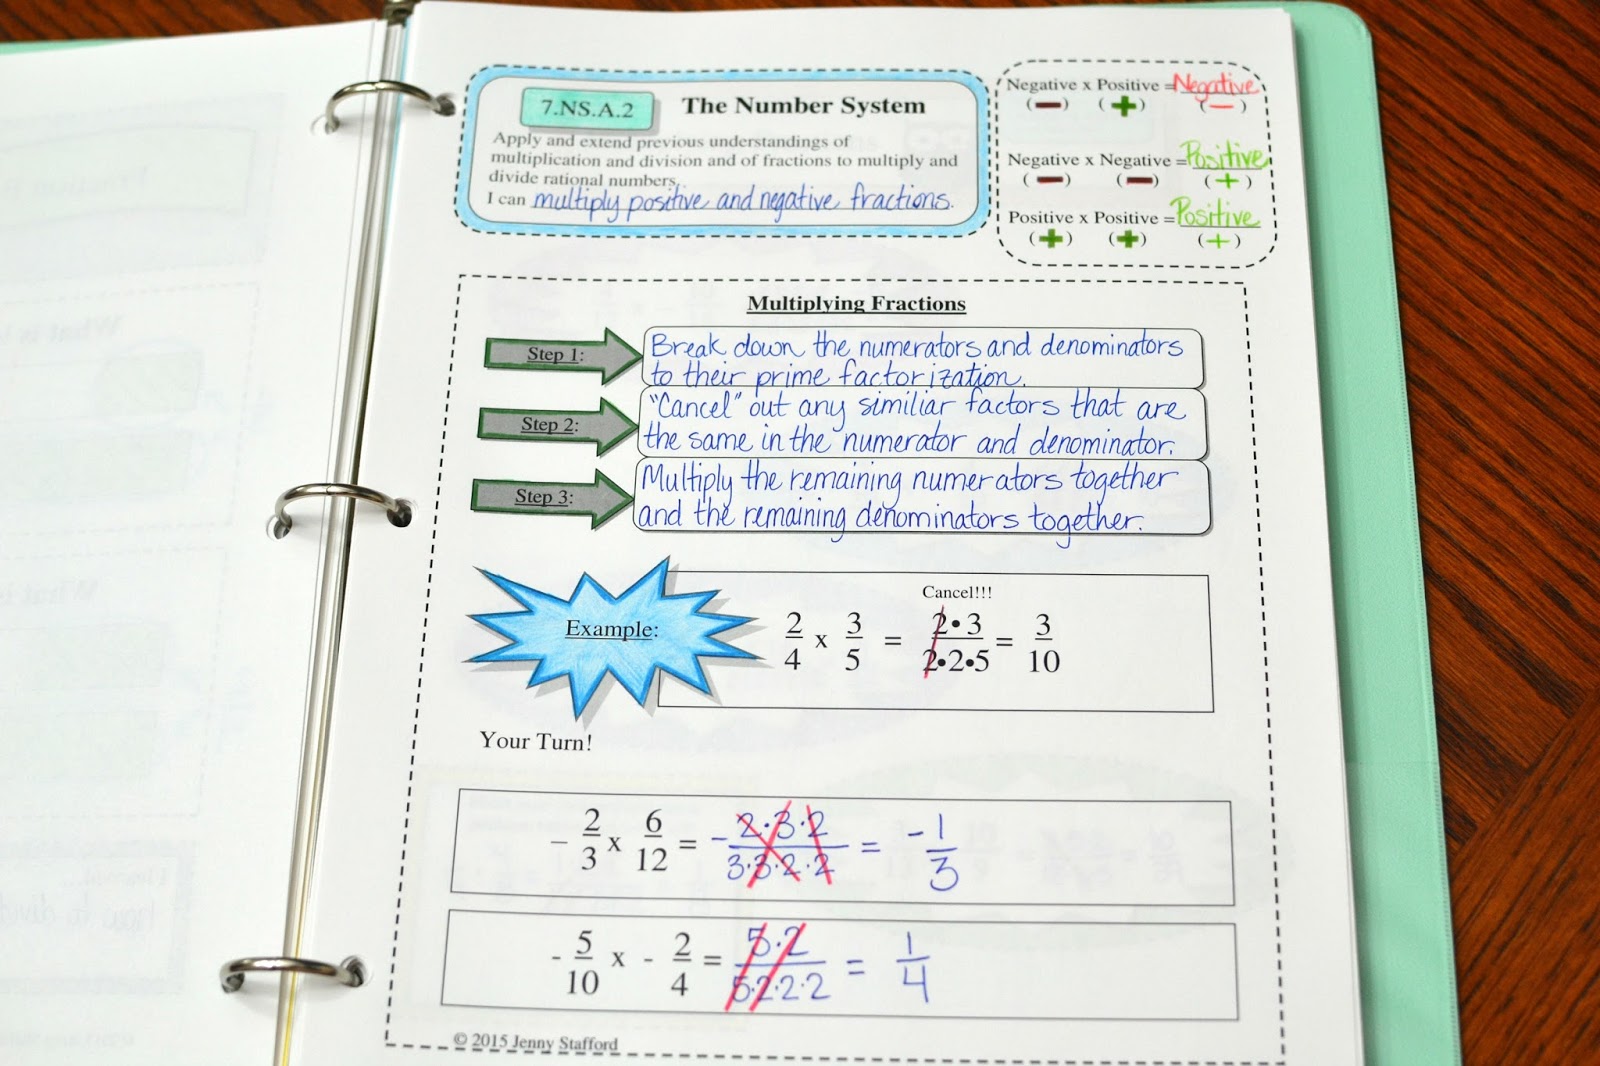 7.NS.A.2 The Number System
Apply and extend previous understandings of
multiplication and division and of fractions to multiply and
divide rational numbers.
I can multiply positive and negative fractions.
Negative x Positive = Negative
(-) (+) (-)
Negative x Negative = Positive
(-) (-) (+)
Positive x Positive = Positive
(+) (+) (+)
Multiplying Fractions
Step 1: Break down the numerators and denominators
to their prime factorization.
Step 2: "Cancel" out any similiar factors that are
the same in the numerator and denominator.
Step 3: Multiply the remaining numerators together
and the remaining denominators together.
Cancel!!!
Example: 2/4 x 3/5 = 2•3/2•2•5 = 3/10
Your Turn!
- 2/3 x 6/12 = - 2·3·2/3·3·2·2 = - 1/3
- 5/10 x - 2/4 = 5·2/5·2·2·2 = 1/4
© 2015 Jenny Stafford